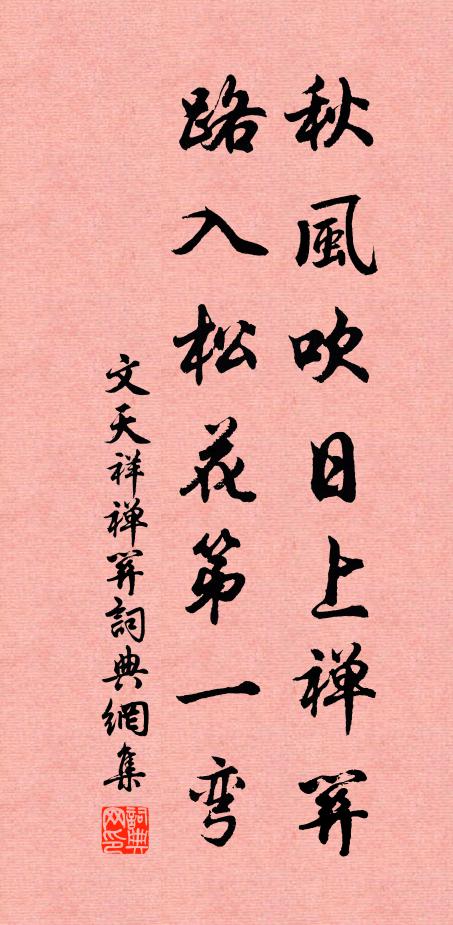 秋風吹日上禅関
路入松花第一弯
文天祥禅関詞典網集
詞典网印